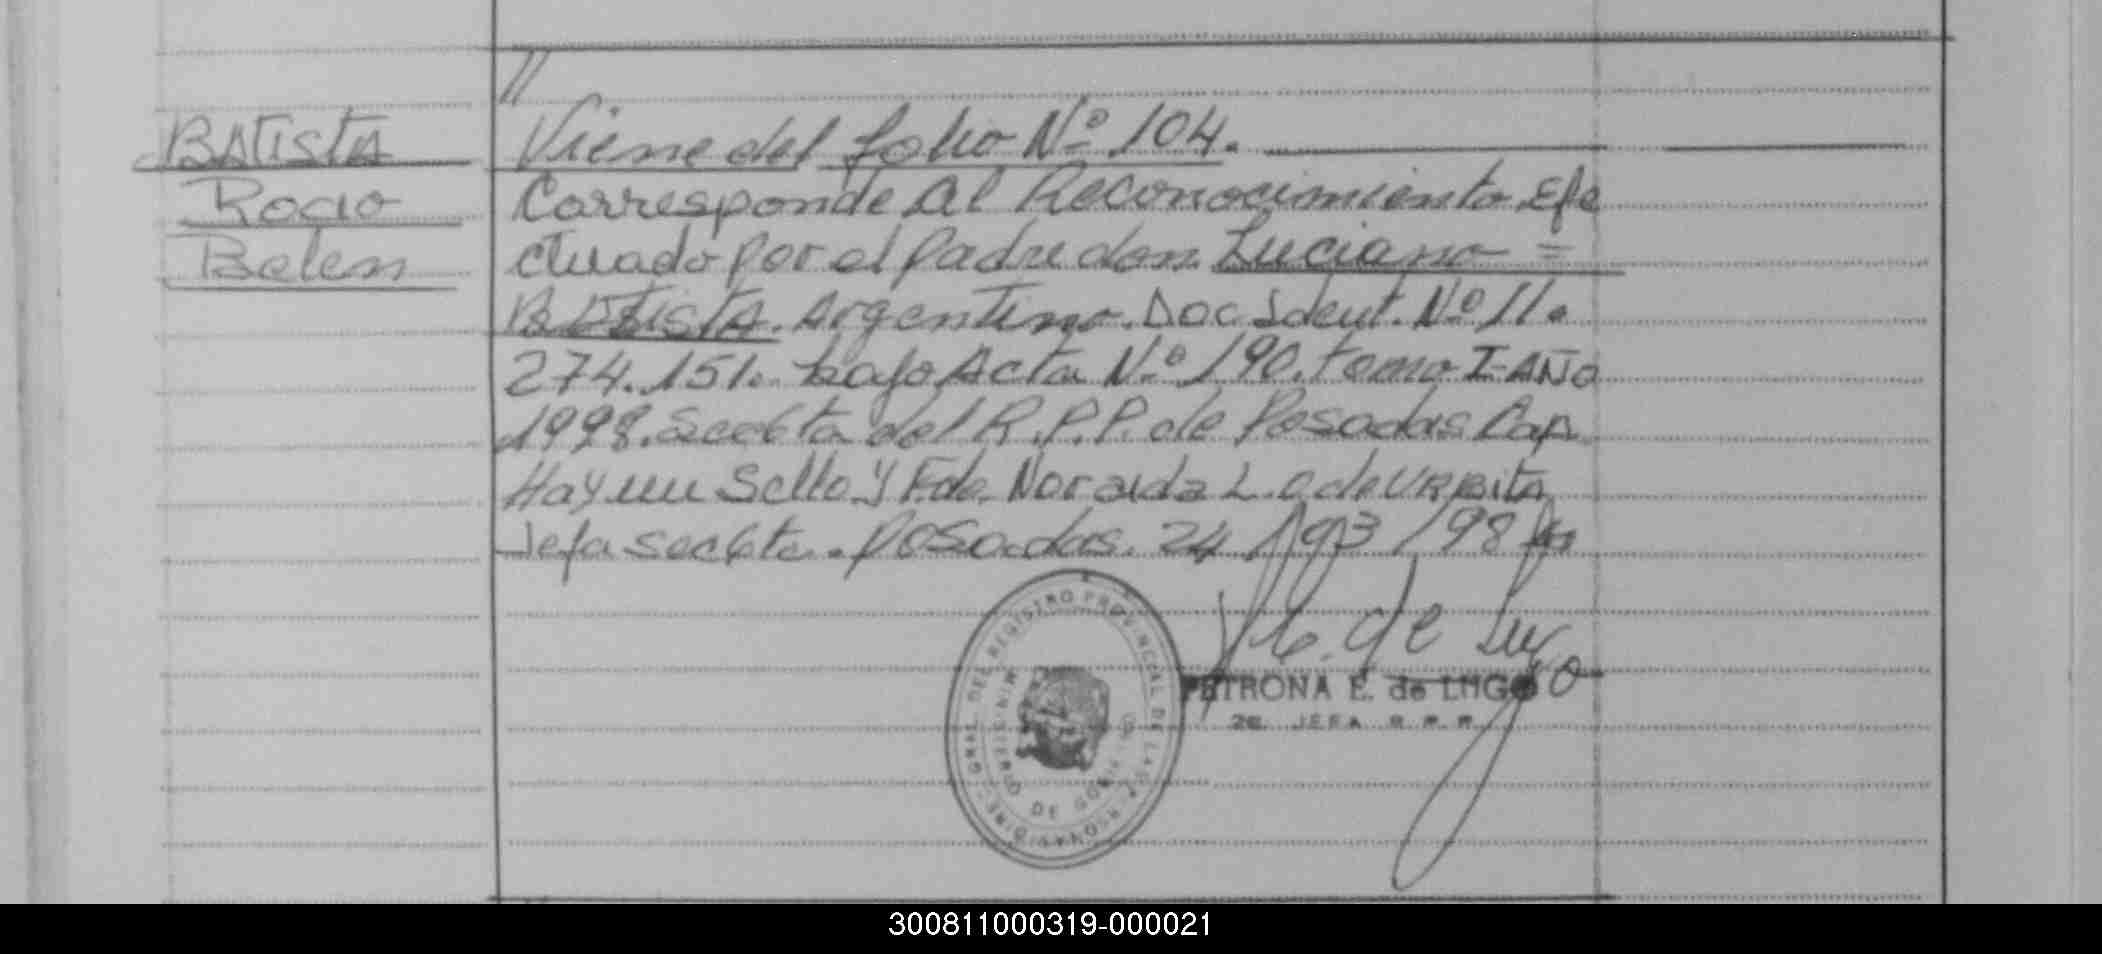 //
BATISTA
Rocio
Belen
Viene del folio Nº 104.
Corresponde al Reconocimiento Efe
ctuado por el padre don Luciano =
BATISTA. Argentino. Doc Ident. Nº 11.
274.151. bajo Acta Nº 190. tomo I-AÑO
1998. Secc 6ta del R.P.P. de Posadas Cap.
Hay un Sello y Fdo. Noraida L. O de URBITA
Jefa secc 6ta. Posadas. 24/03/98
de Lugo
PETRONA E. de LUGO
2a. JEFA R.P.P.
DIREC. GRAL. DEL REGISTRO PROVINCIAL DE LAS PERSONAS
MINISTERIO DE GOBIERNO
300811000319-000021